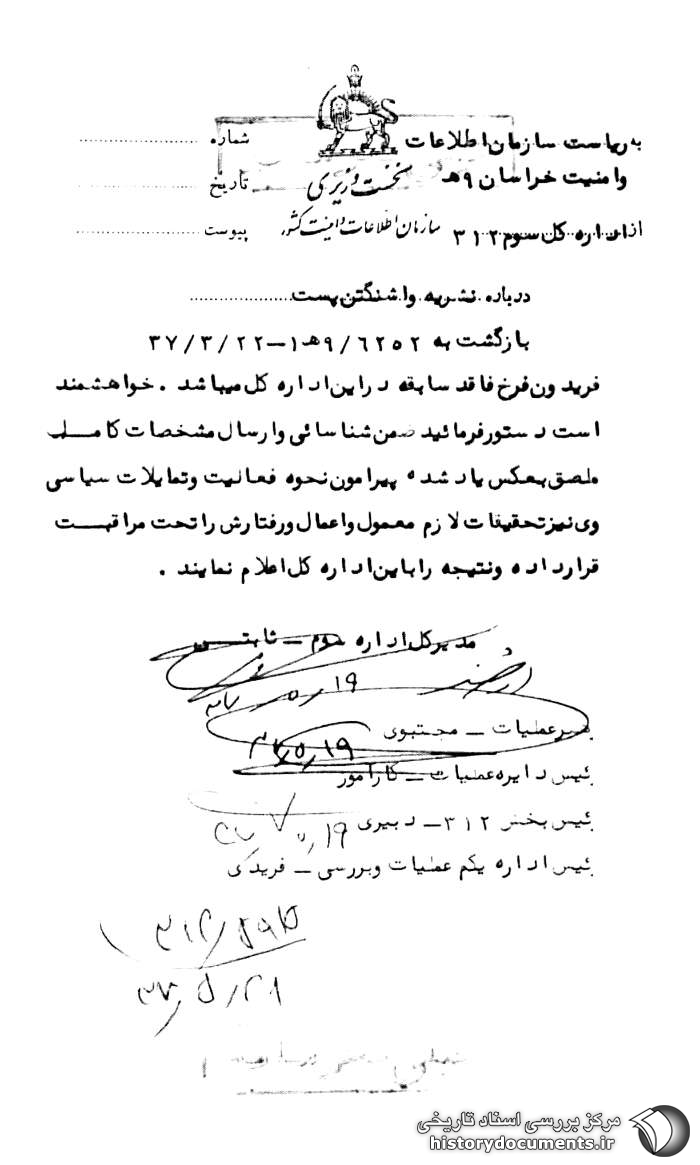 به ریاست سازمان اطلاعات شماره
و امنیت خراسان ۹ هـ نخست وزیری تاریخ
از اداره کل سوم ۳۱۲ سازمان اطلاعات و امنیت کشور پیوست
درباره نشریه واشنگتن پست
بازگشت به ۹/۶۲۵۲هـ۱-۳۷/۳/۲۲
فریدون فرخ فاقد سابقه در این اداره کل میباشد . خواهشمند
است دستور فرمائید ضمن شناسائی و ارسال مشخصات کامل
ملصق بعکس یاد شده پیرامون نحوه فعالیت و تمایلات سیاسی
وی نیز تحقیقات لازم معمول و اعمال و رفتارش را تحت مراقبت
قرار داده و نتیجه را باین اداره کل اعلام نمایند .
مدیر کل اداره سوم ـ ثابتی
۱۹
عملیات ـ مجتبوی
۱۹
ئیس دایره عملیات ـ کارآموز
ئیس بخش ۳۱۲ ـ دبیری
۱۹
ئیس اداره یکم عملیات و بررسی ـ فریدی
مرکز بررسی اسناد تاریخی
historydocuments.ir